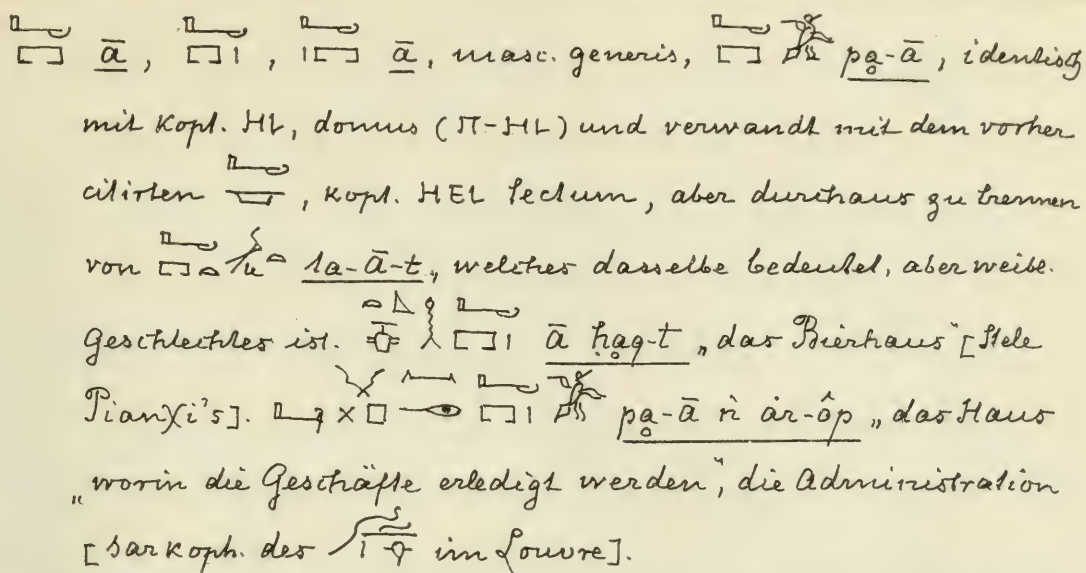 ā, , ā, masc. generis, pḁ-ā, identisch
mit Kopt. ⲎⲒ, domus (Ⲡ-ⲎⲒ) und verwandt mit dem vorher
citirten , Kopt. ⲎⲈⲒ tectum, aber durchaus zu trennen
von ta-ā-t, welches dasselbe bedeutet, aber weibl.
Geschlechtes ist. ā ḥaq-t „das Bierhaus" [Stele
Pianχi's]. pḁ-ā ǹ àr-ôp „das Haus
„worin die Geschäfte erledigt werden", die Administration
[Sarkoph. des im Louvre].